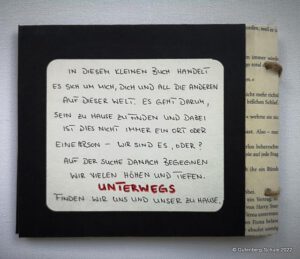 IN DIESEM KLEINEN BUCH HANDELT
ES SICH UM MICH, DICH UND ALL DIE ANDEREN
AUF DIESER WELT. ES GEHT DARUM,
SEIN ZU HAUSE ZU FINDEN UND DABEI
IST DIES NICHT IMMER EIN ORT ODER
EINE PERSON – WIR SIND ES, ODER?
AUF DER SUCHE DANACH BEGEGNEN
WIR VIELEN HÖHEN UND TIEFEN.
UNTERWEGS
FINDEN WIR UNS UND UNSER ZU HAUSE.
© Gutenberg-Schule 2022